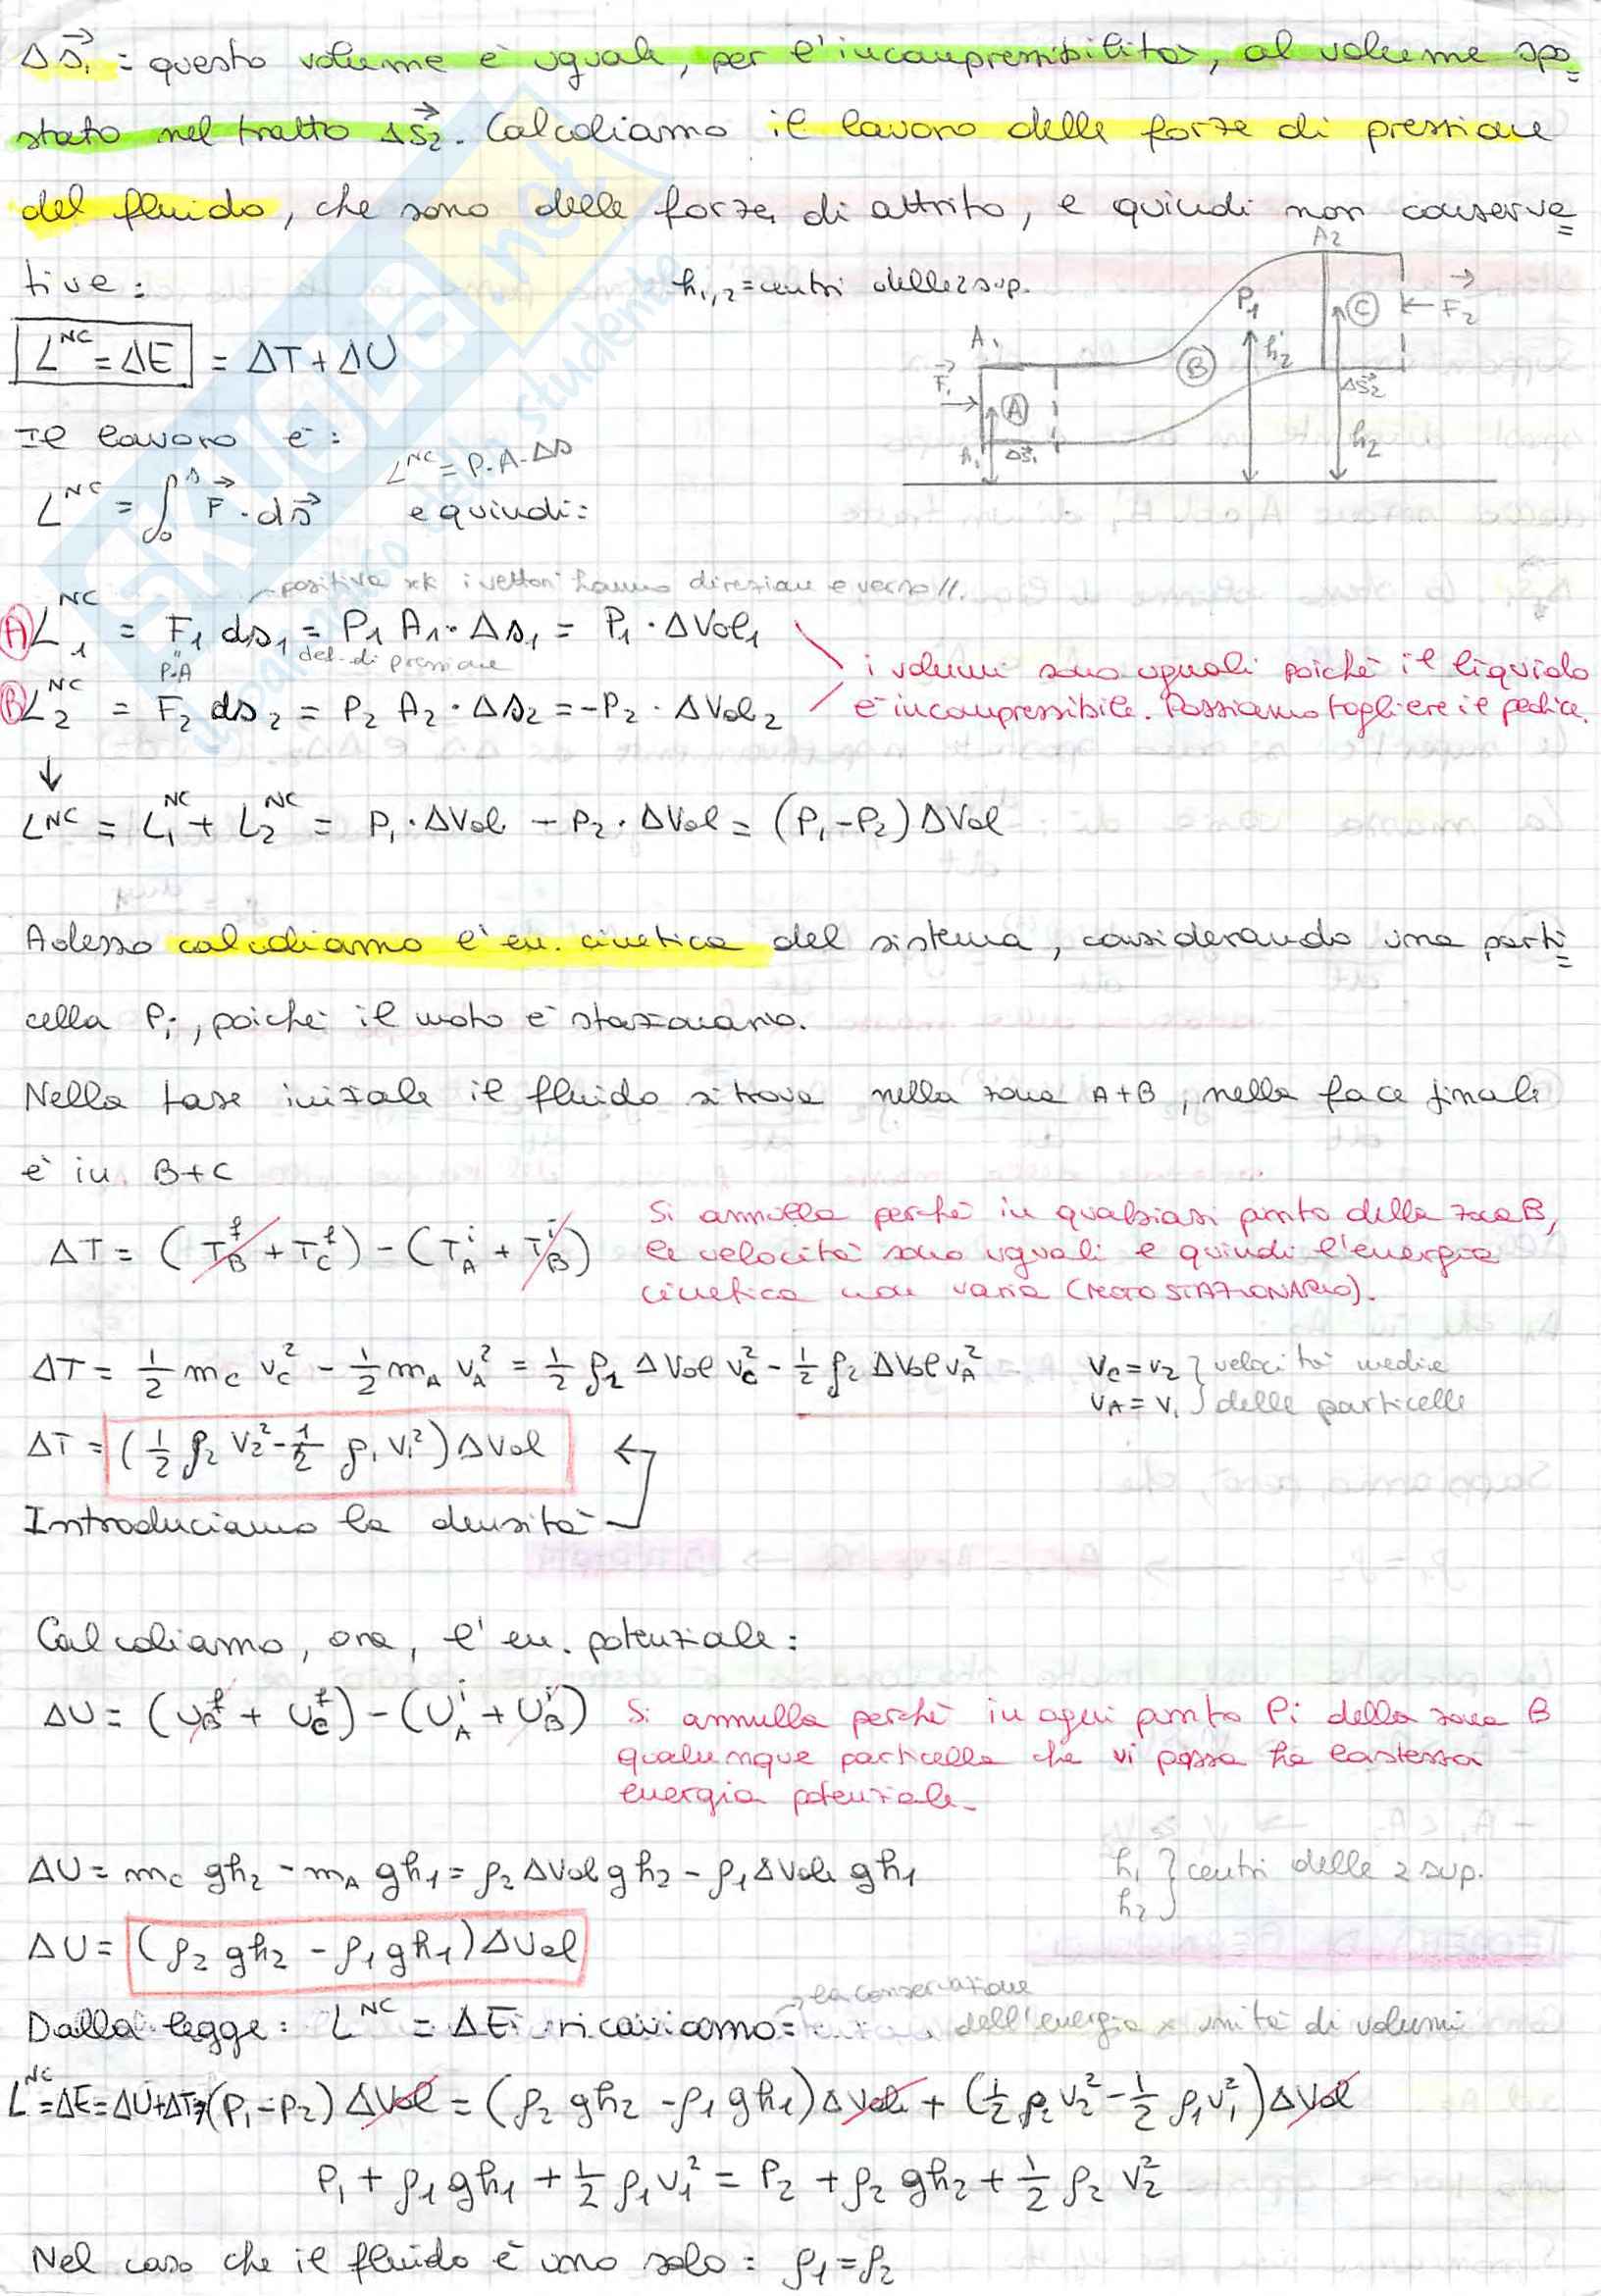 ΔS⃗₁ = questo volume è uguale, per l'incompressibilità, al volume spo=
stato nel tratto ΔS⃗₂. Calcoliamo il lavoro delle forze di pressione
del fluido, che sono delle forze di attrito, e quindi non conserva=
tive:
h₁,₂ = centri delle 2 sup.
A₂
P₁
C
F⃗₂
A₁
B
h₂
F⃗₁
A
ΔS⃗₂
h₁
ΔS⃗₁
h₂
L^NC = ΔE = ΔT + ΔU
Il lavoro è:
L^NC = P·A·Δs
L^NC = ∫₀^s F⃗ · ds⃗ e quindi:
positiva xk i vettori hanno direzione e verso //.
A L₁^NC = F₁ ds₁ = P₁ A₁ · Δs₁ = P₁ · ΔVol₁
P·A
def. di pressione
B L₂^NC = F₂ ds₂ = P₂ A₂ · Δs₂ = -P₂ · ΔVol₂
i volumi sono uguali poichè il liquido
è incompressibile. Possiamo togliere il pedice.
↓
L^NC = L₁^NC + L₂^NC = P₁ · ΔVol - P₂ · ΔVol = (P₁ - P₂) ΔVol
Adesso calcoliamo l'en. cinetica del sistema, considerando una parti=
cella Pi, poichè il moto è stazionario.
Nella fase iniziale il fluido si trova nella zona A+B, nella fase finale
è in B+C
ΔT = (T_B^f + T_C^f) - (T_A^i + T_B^i)
Si annulla perchè in qualsiasi punto della zona B,
le velocità sono uguali e quindi l'energia
cinetica non varia (MOTO STAZIONARIO).
ΔT = 1/2 m_C v_C² - 1/2 m_A v_A² = 1/2 ρ₂ ΔVol v_C² - 1/2 ρ₂ ΔVol v_A²
v_C = v₂ } velocità medie
v_A = v₁ } delle particelle
ΔT = (1/2 ρ₂ v₂² - 1/2 ρ₁ v₁²) ΔVol
Introduciamo la densità
Calcoliamo, ora, l'en. potenziale:
ΔU = (U_B^f + U_C^f) - (U_A^i + U_B^i)
Si annulla perchè in ogni punto Pi della zona B
qualunque particella che vi passa ha la stessa
energia potenziale.
ΔU = m_C gh₂ - m_A gh₁ = ρ₂ ΔVol gh₂ - ρ₁ ΔVol gh₁
h₁ } centri delle 2 sup.
h₂ }
ΔU = (ρ₂ gh₂ - ρ₁ gh₁) ΔVol
la conservazione
Dalla legge: L^NC = ΔE ricaviamo: dell'energia x unità di volume
L^NC = ΔE = ΔU + ΔT ⇒ (P₁ - P₂) ΔVol = (ρ₂ gh₂ - ρ₁ gh₁) ΔVol + (1/2 ρ₂ v₂² - 1/2 ρ₁ v₁²) ΔVol
P₁ + ρ₁ gh₁ + 1/2 ρ₁ v₁² = P₂ + ρ₂ gh₂ + 1/2 ρ₂ v₂²
Nel caso che il fluido è uno solo: ρ₁ = ρ₂